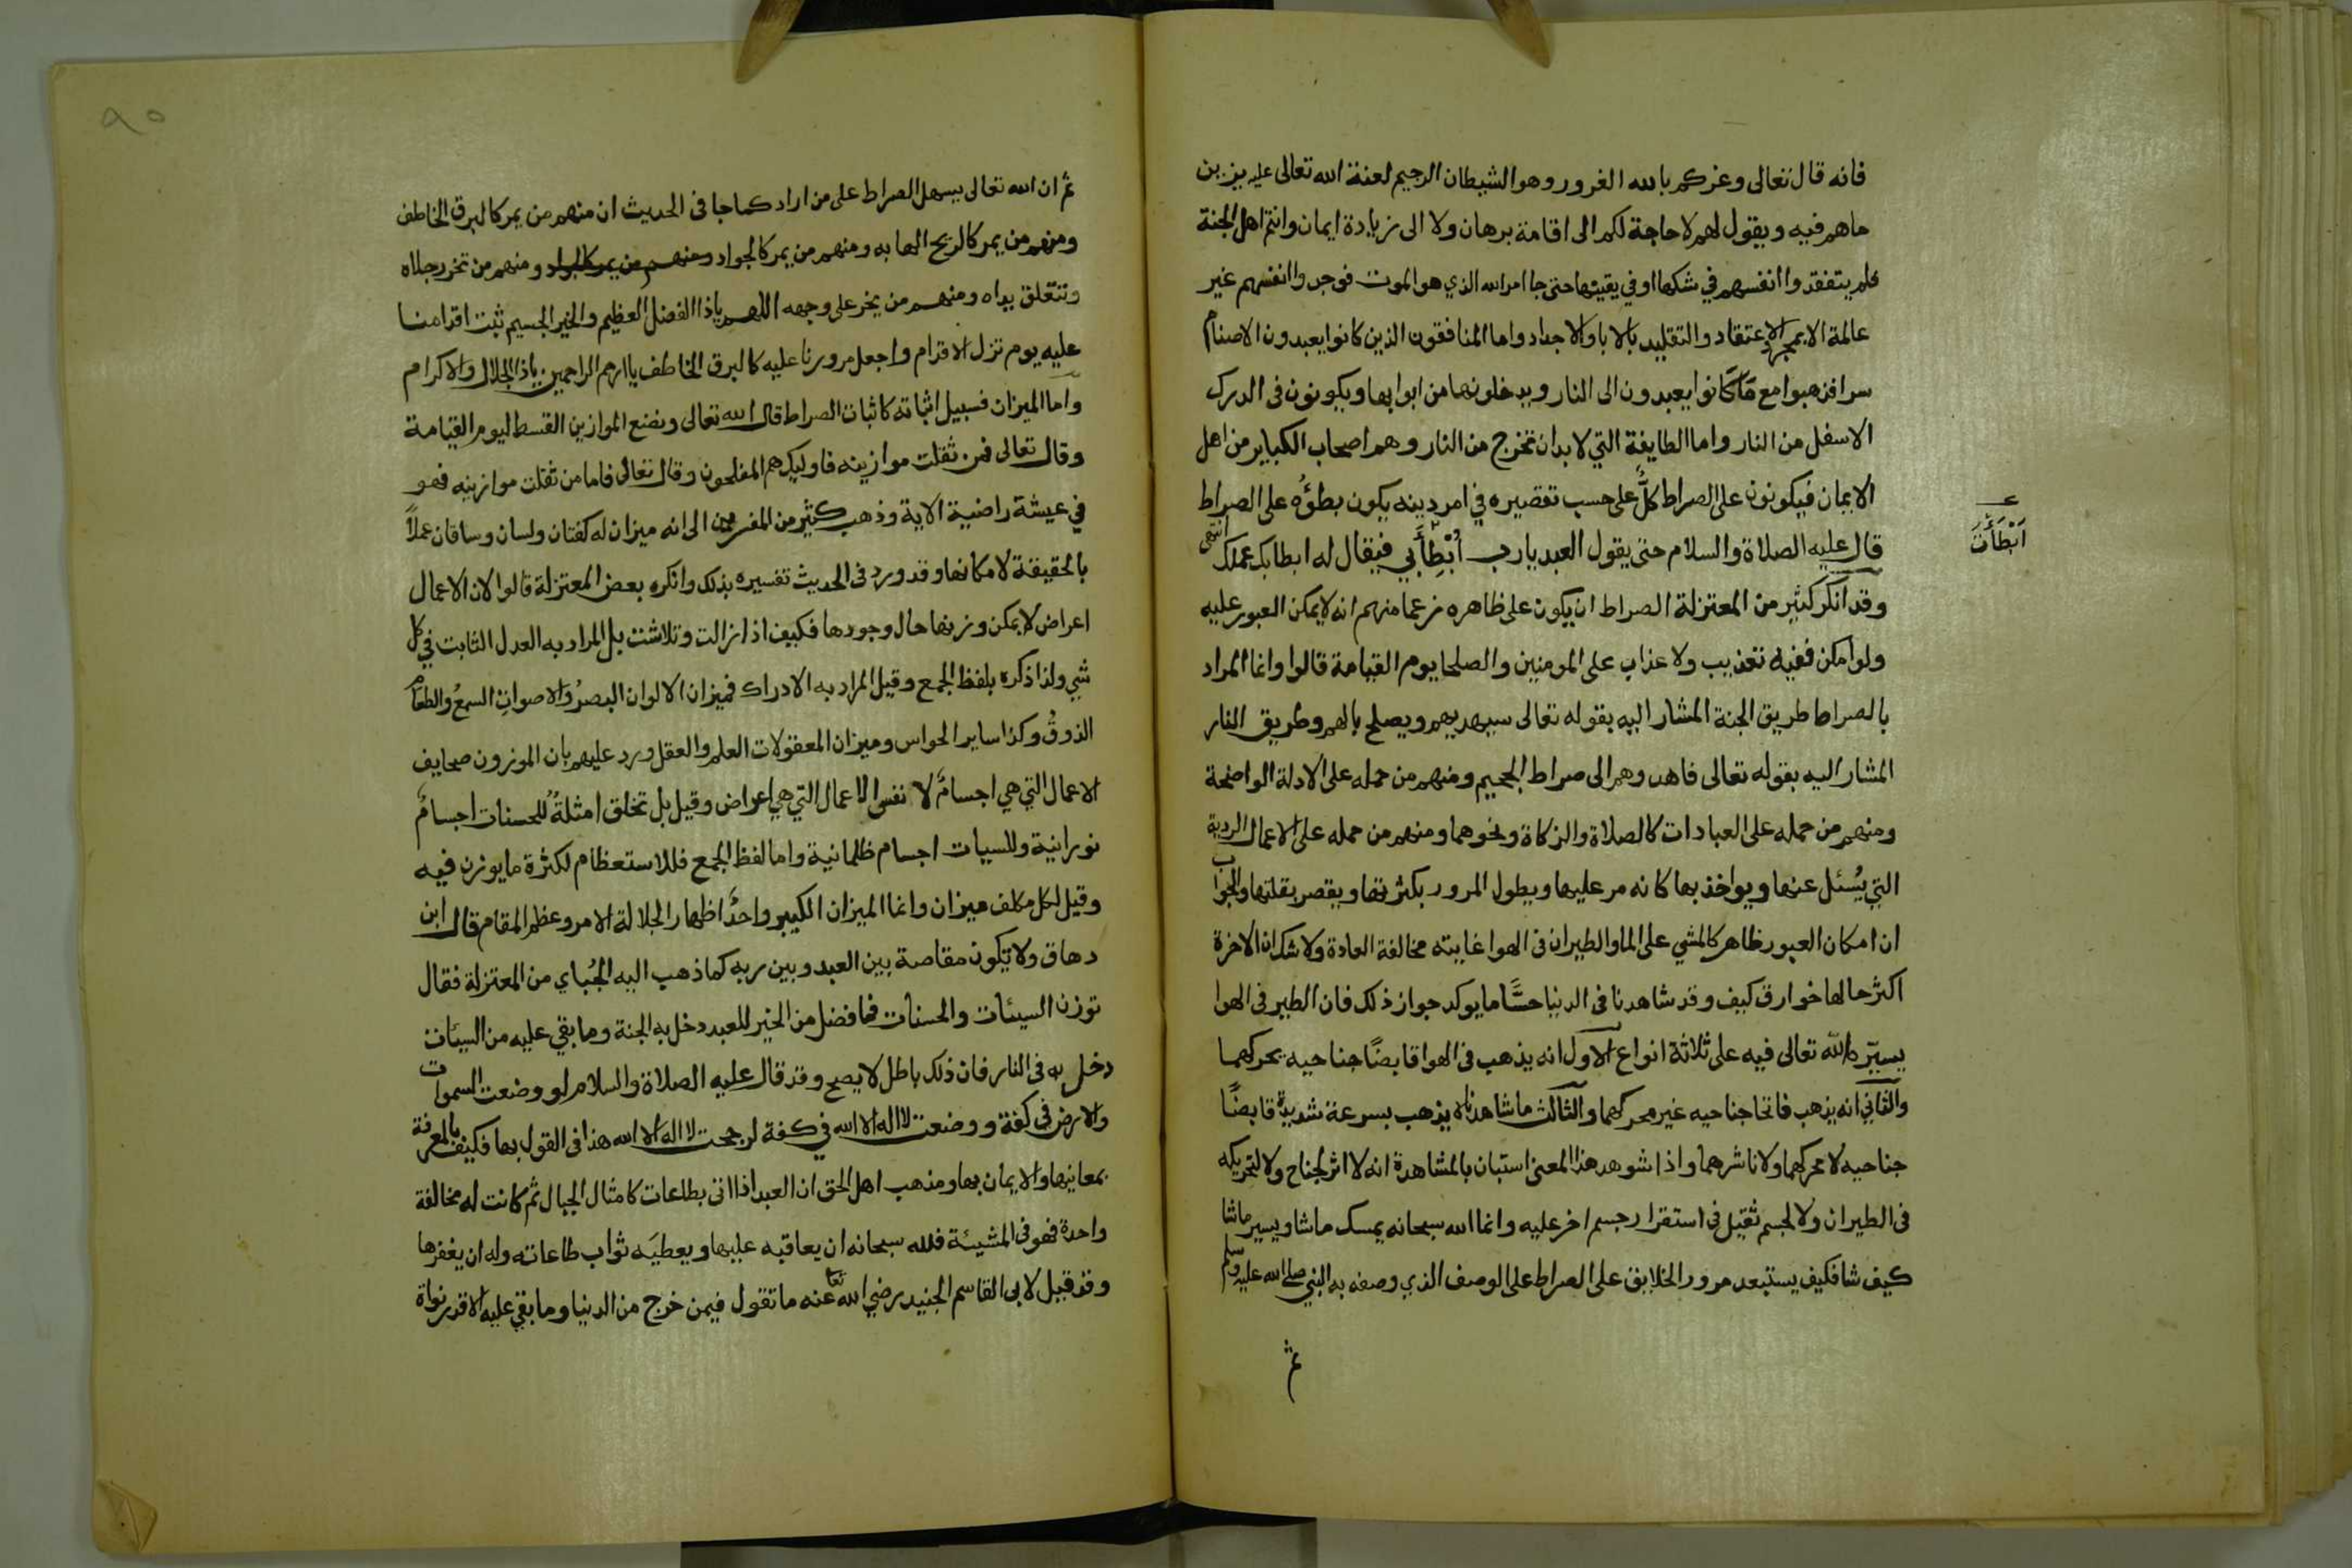 فانه قال تعالى وغركم بالله الغرور وهو الشيطان الرجيم لعنة الله تعالى عليه يزين
ماهم فيه ويقول لهم لا حاجة لكم الى اقامة برهان ولا الى زيادة ايمان وانتم اهل الجنة
فلم يتفقدوا انفسهم في شكها او في يقينها حتى جا امر الله الذي هو الموت فوجدوا انفسهم غير
عالمة الا بمجرد الاعتقاد والتقليد بالابا والاجداد واما المنافقون الذين كانوا يعبدون الاصنام
سرا فذهبوا مع ما كانوا يعبدون الى النار ويدخلونها من ابوابها ويكونون في الدرك
الاسفل من النار واما الطايفة التي لا بد ان تخرج من النار وهم اصحاب الكباير من اهل
الايمان فيكونون على الصراط كلٌّ على حسب تقصيره في امر دينه يكون بطؤُه على الصراط
قال عليه الصلاة والسلام حتى يقول العبد يارب أبْطِأَبي فيقال له ابطا بك عملك انتهى
ابْطَأتَ
وقد انكر كثير من المعتزلة الصراط ان يكون على ظاهره زعما منهم انه لا يمكن العبور عليه
ولو امكن ففيه تعذيب ولا عذاب على المومنين والصلحا يوم القيامة قالوا وانما المراد
بالصراط طريق الجنة المشار اليه بقوله تعالى سيهديهم ويصلح بالهم وطريق النار
المشار اليه بقوله تعالى فاهدوهم الى صراط الجحيم ومنهم من حمله على الادلة الواضحة
ومنهم من حمله على العبادات كالصلاة والزكاة ونحوهما ومنهم من حمله على الاعمال الردية
التي يُسئل عنها ويواخذ بها كانه مر عليها ويطول المرور بكثرتها ويقصر بقلتها والجواب
ان امكان العبور ظاهر كالمشي على الما والطيران في الهوا غايته مخالفة العادة ولا شك ان الاخرة
اكثر حالها خوارق كيف وقد شاهدنا في الدنيا حسًّا ما يوكد جواز ذلك فان الطير في الهوا
يسيّره الله تعالى فيه على ثلاثة انواع الاول انه يذهب في الهوا قابضًا جناحيه يحركهما
والثاني انه يذهب فاتحا جناحيه غير محركهما والثالث ما شاهدناه يذهب بسرعة شديدة قابضًا
جناحيه لا محركهما ولا ناشرهما واذا شوهد هذا المعنى استبان بالمشاهدة انه لا اثر لجناح ولا لتحريكه
في الطيران ولا لجسم ثقيل في استقرار جسم اخر عليه وانما الله سبحانه يمسك ما شا ويسير ما شا
كيف شا فكيف يستبعد مرور الخلايق على الصراط على الوصف الذي وصفه به النبي صلى الله عليه وسلم
ثم
٩٥
ثم ان الله تعالى يسهل الصراط على من اراد كما جا في الحديث ان منهم من يمر كالبرق الخاطف
ومنهم من يمر كالريح الهابه ومنهم من يمر كالجواد ومنهم من يمر كالجواد ومنهم من تخر رجلاه
وتتعلق يداه ومنهم من يخر على وجهه اللهم ياذا الفضل العظيم والخير الجسيم ثبت اقدامنا
عليه يوم تزل الاقدام واجعل مرورنا عليه كالبرق الخاطف ياارحم الراحمين ياذا الجلال والاكرام
واما الميزان فسبيل اثباته كاثبات الصراط قال الله تعالى ونضع الموازين القسط ليوم القيامة
وقال تعالى فمن ثقلت موازينه فاوليك هم المفلحون وقال تعالى فاما من ثقلت موازينه فهو
في عيشة راضية الاية وذهب كثير من المفسرين الى انه ميزان له كفتان ولسان وساقان عملاً
بالحقيقة لامكانها وقد ورد في الحديث تفسيره بذلك وانكره بعض المعتزلة قالوا لان الاعمال
اعراض لا يمكن وزنها حال وجودها فكيف اذا زالت وتلاشت بل المراد به العدل الثابت في كل
شي ولذا ذكره بلفظ الجمع وقيل المراد به الادراك فميزان الالوان البصرُ والاصوات السمعُ والطعام
الذوقُ وكذا ساير الحواس وميزان المعقولات العلم والعقل ورد عليهم بان الموزون صحايف
الاعمال التي هي اجسامٌ لا نفس الاعمال التي هي اعراض وقيل بل تخلق امثلةٌ للحسنات اجسامٌ
نورانية وللسيات اجسام ظلمانية واما لفظ الجمع فللاستعظام لكثرة ما يوزن فيه
وقيل لكل مكلف ميزان وانما الميزان الكبير واحدٌ اظهارا لجلالة الامر وعظم المقام قال ابن
دهاق ولا تكون مقاصة بين العبد وبين ربه كما ذهب اليه الجُباي من المعتزلة فقال
توزن السيئات والحسنات فما فضل من الخير للعبد دخل به الجنة وما بقي عليه من السيئات
دخل به في النار فان ذلك باطل لا يصح وقد قال عليه الصلاة والسلام لو وضعت السموات
والارض في كفة ووضعت لا اله الا الله في كفة لرجحت لا اله الا الله هذا في القول بها فكيف بالمعرفة
بمعانيها والايمان بها ومذهب اهل الحق ان العبد اذا اتى بطاعات كامثال الجبال ثم كانت له مخالفة
واحدة فهو في المشيئة فلله سبحانه ان يعاقبه عليها ويعطيَه ثواب طاعاته وله ان يغفرها
وقد قيل لابى القاسم الجنيد رضي الله تعا عنه ما تقول فيمن خرج من الدنيا وما بقي عليه الا قدر نواة